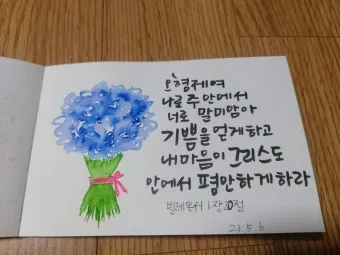 오 형제여
나로 주 안에서
너로 말미암아
기쁨을 얻게하고
내 마음이 그리스도
안에서 평안하게하라
빌레몬서 1장20절
23. 5. 6